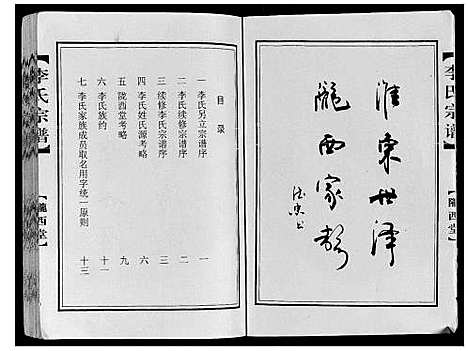 李氏宗谱
隴西堂
淮东世泽
隴西家声
目录
一 李氏另立宗谱序 一
二 李氏续修宗谱序 二
三 续修李氏宗谱序 四
四 李氏姓氏源考略 六
五 陇西堂考略 九
六 李氏族约 十一
七 李氏家族成员取名用字统一原则 十三
李氏宗谱
隴西堂